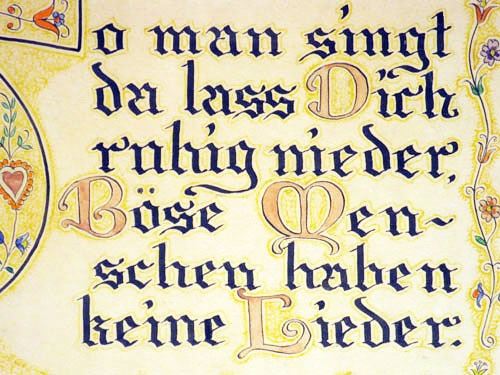 o man singt
da lass Dich
ruhig nieder,
Böse Men~
schen haben
keine Lieder.